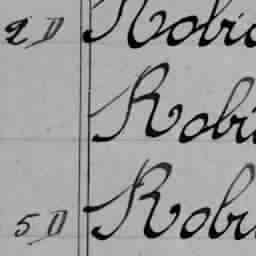 2 D Robi
Robi
5 D Robi